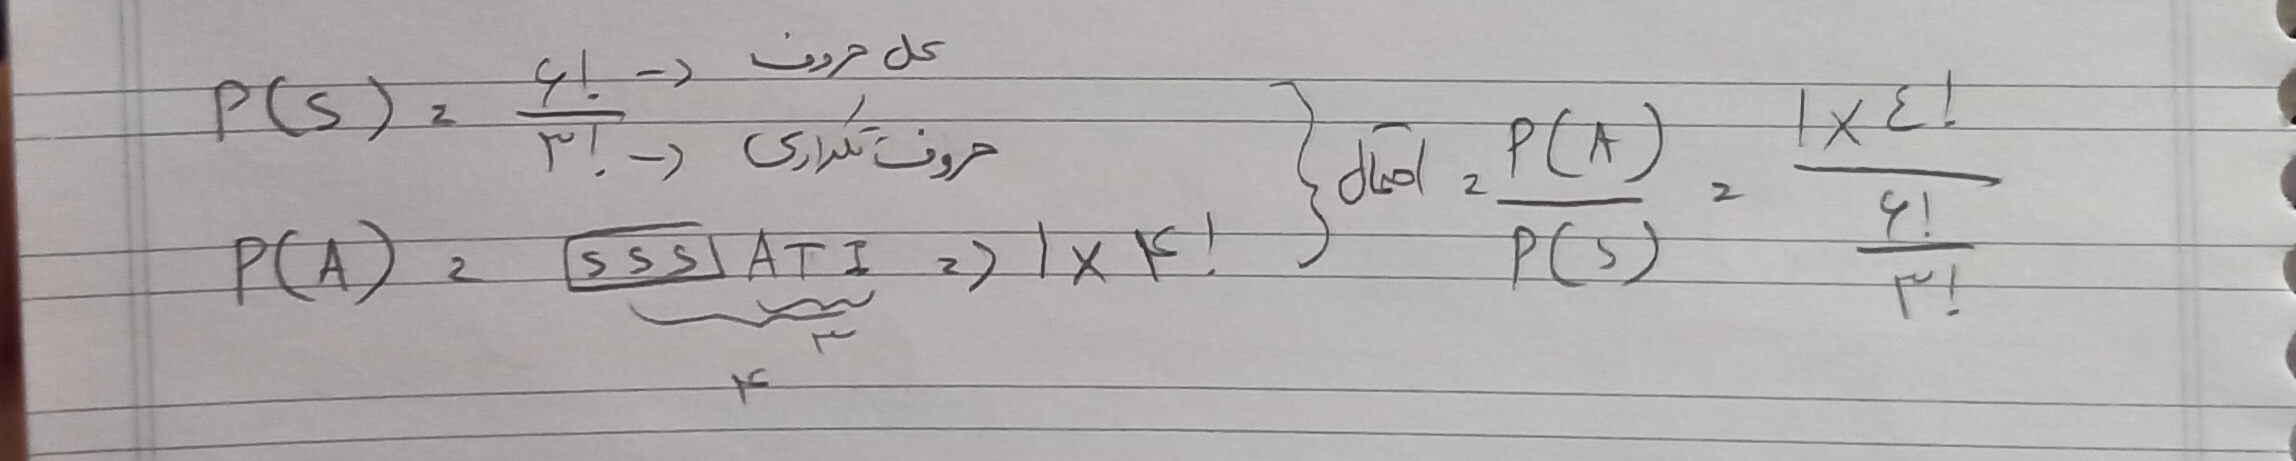 P(S) = ۶! / ۳!
→ کل حروف
→ حروف تکراری
P(A) = [SSS] ATI => ۱ × ۴!
۳
۴
احتمال = P(A) / P(S) = (۱ × ٤!) / (۶! / ۳!)